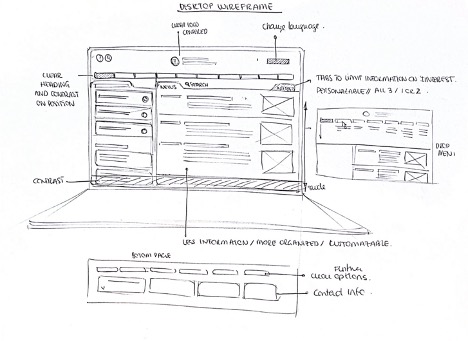 DESKTOP WIREFRAME
CLEAR LOGO
CENTERED
Change language.
CLEAR
HEADING
AND CONTRAST
ON POSITION
NEWS
RESEARCH
EVENTS
TABS TO LIMIT INFORMATION ON INTEREST.
PERSONALIZABLE / ALL 3 / 1 OR 2
DROP
MENU
CONTRAST
LESS INFORMATION / MORE ORGANIZED / CUSTOMIZABLE.
BOTTOM PAGE
Further
menu options.
Contact info.